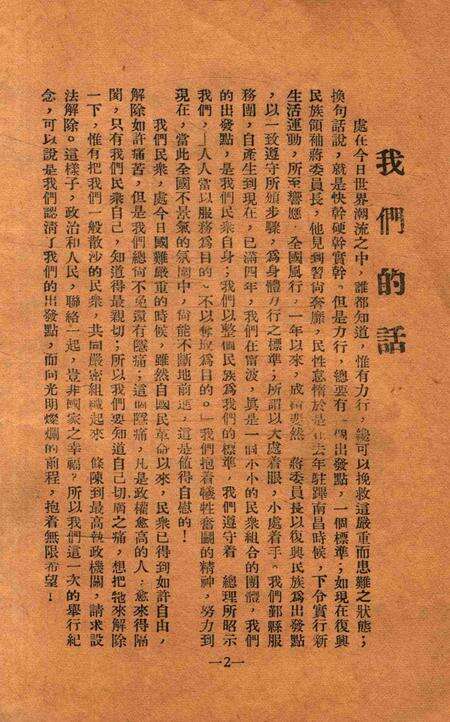 我們的話
處在今日世界潮流之中，誰都知道，惟有力行，纔可以挽救這嚴重而患難之狀態；
換句話說，就是快幹硬幹實幹。但是力行，總要有一個出發點，一個標準；如現在復興
民族領袖蔣委員長，他見到習尚奢靡，民性怠惰於是在去年駐蹕南昌時候，下令實行新
生活運動，所至響應，全國風行，一年以來，成績斐然，蔣委員長以復興民族為出發點
，以一致遵守所頒步驟，為身體力行之標準；所謂以大處着眼，小處着手。我們鄞縣服
務團，自產生到現在，已滿四年，我們在甯波，眞是一個小小的民衆組合的團體，我們
的出發點，是我們民衆自身；我們以整個民族為我們的標準，我們遵守着　總理所昭示
我們，「人人當以服務為目的，不以奪取為目的。」我們抱着犧牲奮鬭的精神，努力到
現在，當此全國不景氣的氛圍中，尙能不斷地前進，這是值得自慰的！
我們民衆，處今日國難嚴重的時候，雖然自國民革命以來，民衆已得到如許自由，
解除如許痛苦，但是我們總尙不免還有隱痛；這個隱痛，凡是政權愈高的人，愈來得隔
閡，只有我們民衆自己，知道得最親切；所以我們要知道自己切膚之痛，想把牠來解除
一下，惟有把我們一般散沙的民衆，共同嚴密組織起來，條陳到最高執政機關，請求設
法解除。這樣子，政治和人民，聯絡一起，豈非國家之幸福？所以我們這一次的舉行紀
念，可以說是我們認清了我們的出發點，而向光明燦爛的前程，抱着無限希望！
—2—